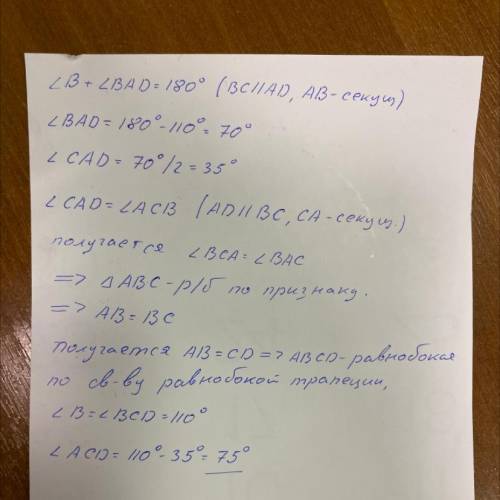 ∠B + ∠BAD = 180° (BC||AD, AB - секущ)
∠BAD = 180° - 110° = 70°
∠CAD = 70°/2 = 35°
∠CAD = ∠ACB (AD||BC, CA - секущ.)
получается ∠BCA = ∠BAC
=> △ABC - р/б по признаку.
=> AB = BC
Получается AB = CD => ABCD - равнобокая
по св-ву равнобокой трапеции,
∠B = ∠BCD = 110°
∠ACD = 110° - 35° = 75°